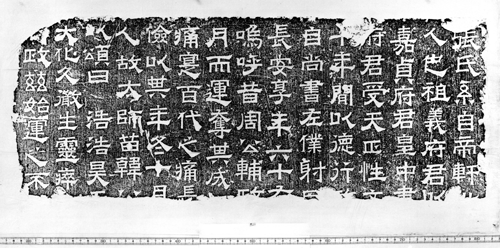 張氏系自帝軒
人也祖義府君
嘉貞府君皇中書
府君受天正性
十年間以德行
自尚書左僕射
長安享年六十
嗚呼昔周公輔
月而運奪其
痛寔百代之痛長
儉以其年十月
人故太師苗韓
頌曰 浩浩昊
大化久生靈
政兹始運之不